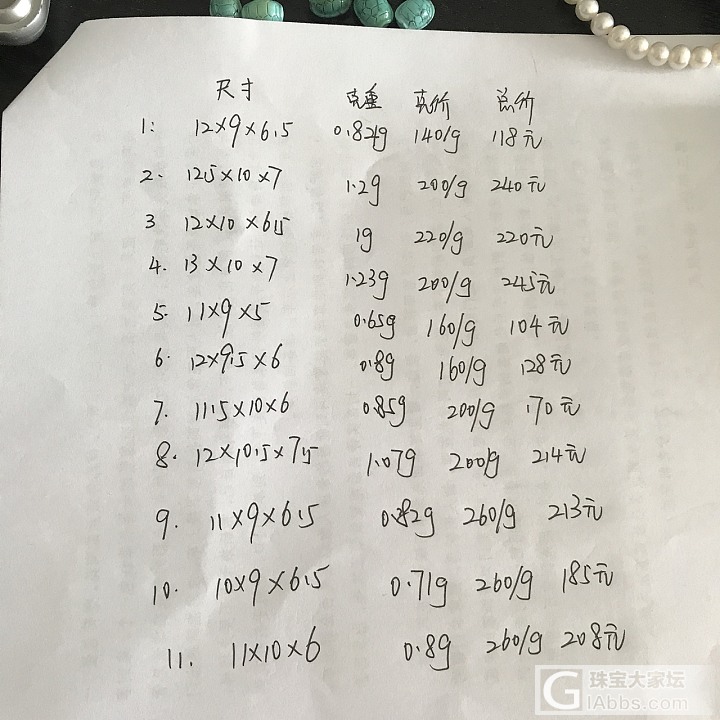 尺寸 克重 克价 总价
1: 12×9×6.5 0.821g 140/g 118元
2. 12.5×10×7 1.2g 200/g 240元
3 12×10×6.5 1g 220/g 220元
4. 13×10×7 1.23g 200/g 245元
5. 11×9×5 0.65g 160/g 104元
6. 12×9.5×6 0.8g 160/g 128元
7. 11.5×10×6 0.85g 200/g 170元
8. 12×10.5×7.5 1.07g 200g 214元
9. 11×9×6.5 0.82g 260/g 213元
10. 10×9×6.5 0.71g 260/g 185元
11. 11×10×6 0.8g 260/g 208元
珠宝大家坛
GIAbbs.com